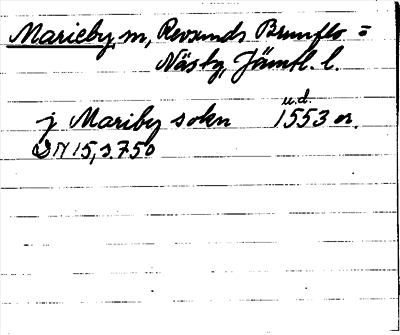 Marieby, m, Revsunds Brunflo =
Näsby, Jämtl. l.
j Mariby sokn u.d. 1553 or.
DN 15, s. 750